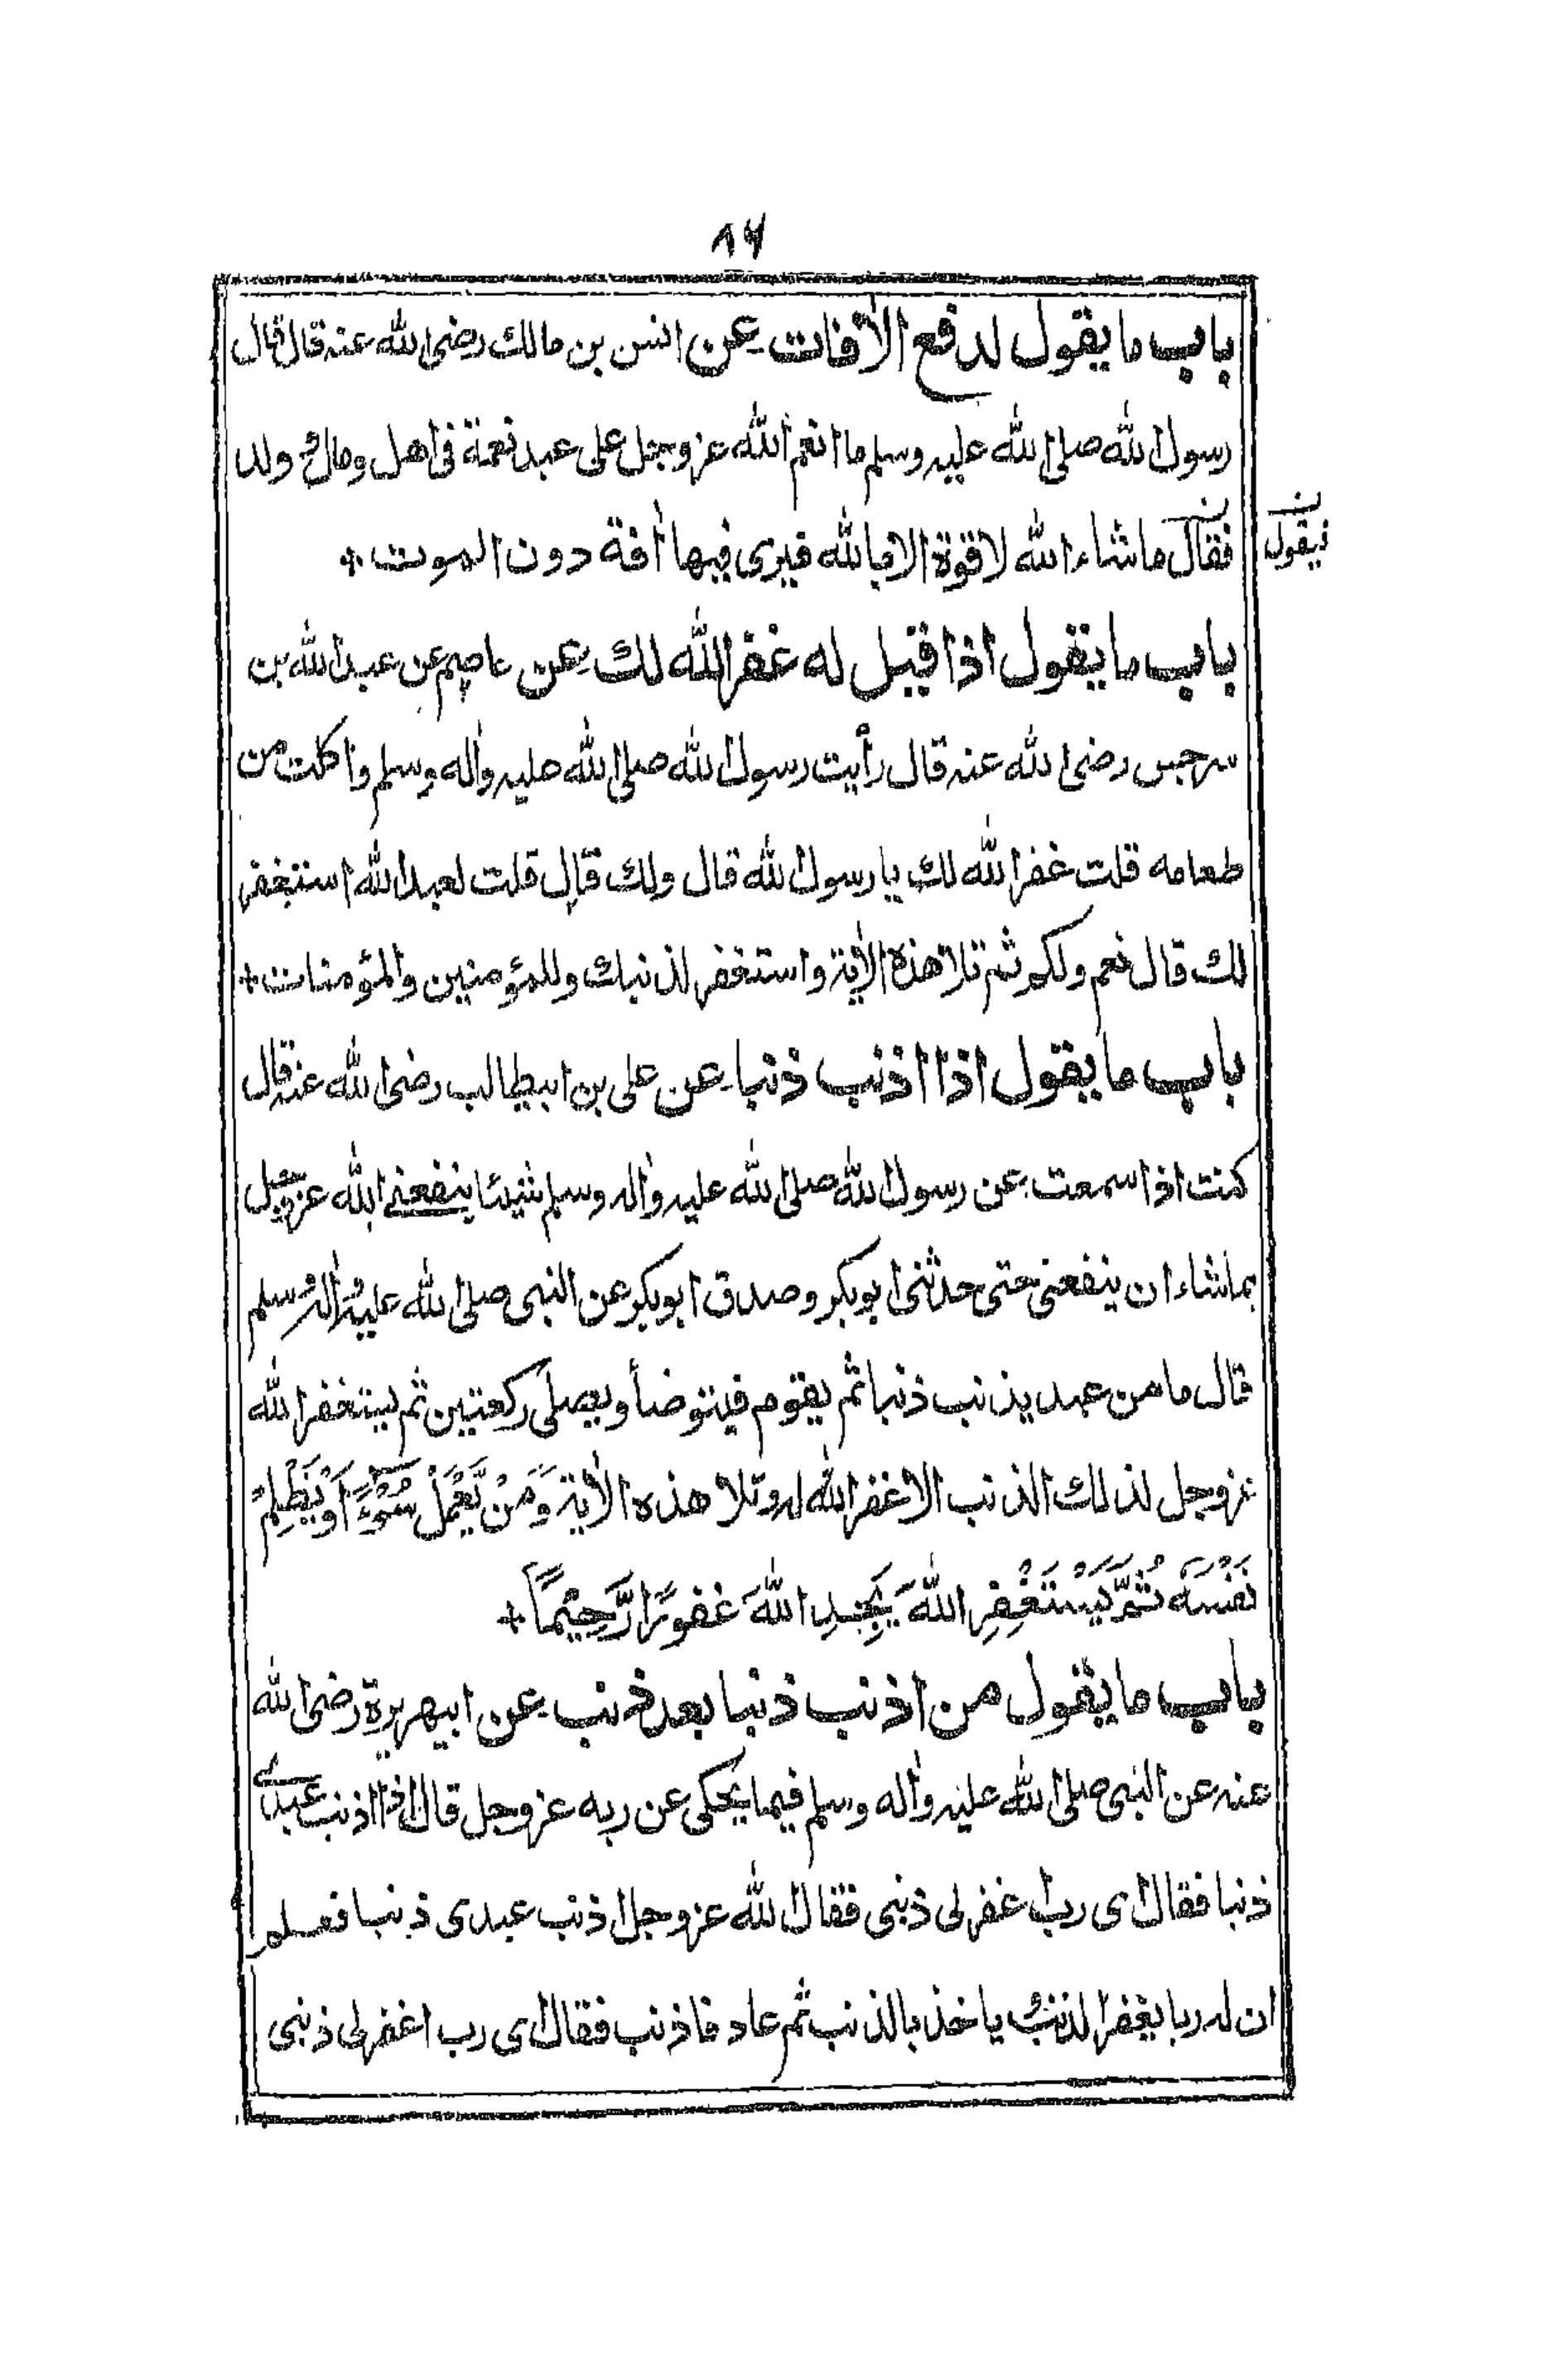 ٨٧
باب ما يقول لدفع الأفات عن انس بن مالك رضى الله عنه قال قال
رسول الله صلى الله عليه وسلم ما انعم الله عز وجل على عبد نعمة فى اهل ومال و ولد
فقال ما شاء الله لا قوة الا بالله فيرى فيها أفة دون الموت +
ن فيقول
باب ما يقول اذا قيل له غفر الله لك عن عاصم عن عبد الله بن
سرجس رضى الله عنه قال رأيت رسول الله صلى الله عليه واله وسلم واكلت من
طعامه قلت غفر الله لك يا رسول الله قال ولك قال قلت لعبد الله استغفر
لك قال نعم ولكم ثم تلا هذه الأية واستغفر لذنبك وللمؤمنين والمؤمنات +
باب ما يقول اذا اذنب ذنبا عن على بن ابيطالب رضى الله عنه قال
كنت اذا سمعت عن رسول الله صلى الله عليه واله وسلم شيئا ينفعنى الله عز وجل
بما شاء ان ينفعنى حتى حدثنى ابوبكر وصدق ابوبكر عن النبى صلى الله عليه واله وسلم
قال ما من عبد يذنب ذنبا ثم يقوم فيتوضأ ويصلى ركعتين ثم يستغفر الله
عز وجل لذلك الذنب الا غفر الله له وتلا هذه الأية وَمَنْ يَّعْمَلْ سُوْءًا اَوْ يَظْلِمْ
نَفْسَهٗ ثُمَّ يَسْتَغْفِرِ اللهَ يَجِدِ اللهَ غَفُوْرًا رَّحِيْمًا +
باب ما يقول من اذنب ذنبا بعد ذنب عن ابيهريرة رضى الله
عنه عن النبى صلى الله عليه واله وسلم فيما يحكى عن ربه عز وجل قال اذا اذنب عبدى
ذنبا فقال اى رب اغفر لى ذنبى فقال الله عز وجل اذنب عبدى ذنبا فعلم
ان له ربا يغفر الذنب و ياخذ بالذنب ثم عاد فاذنب فقال اى رب اغفر لى ذنبى